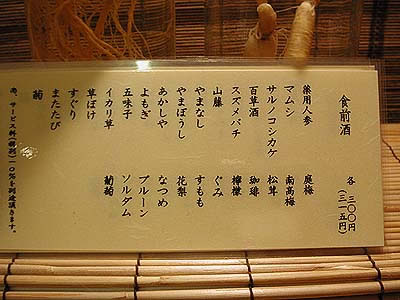 食前酒
各 三〇〇円
(三一五円)
薬用人参 庭梅
マムシ 南高梅
サルノコシカケ 松茸
百草酒 珈琲
スズメバチ 檸檬
山藤 ぐみ
やまなし すもも
やまぼうし 花梨
あかしや なつめ
よもぎ プルーン
五味子 ソルダム
イカリ草 葡萄
草ぼけ
すぐり
またたび
菊
尚、サービス料(個別)10%を別途頂きます。